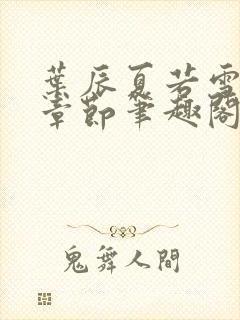 葉辰夏若雪
章節筆趣閣
鬼舞人間